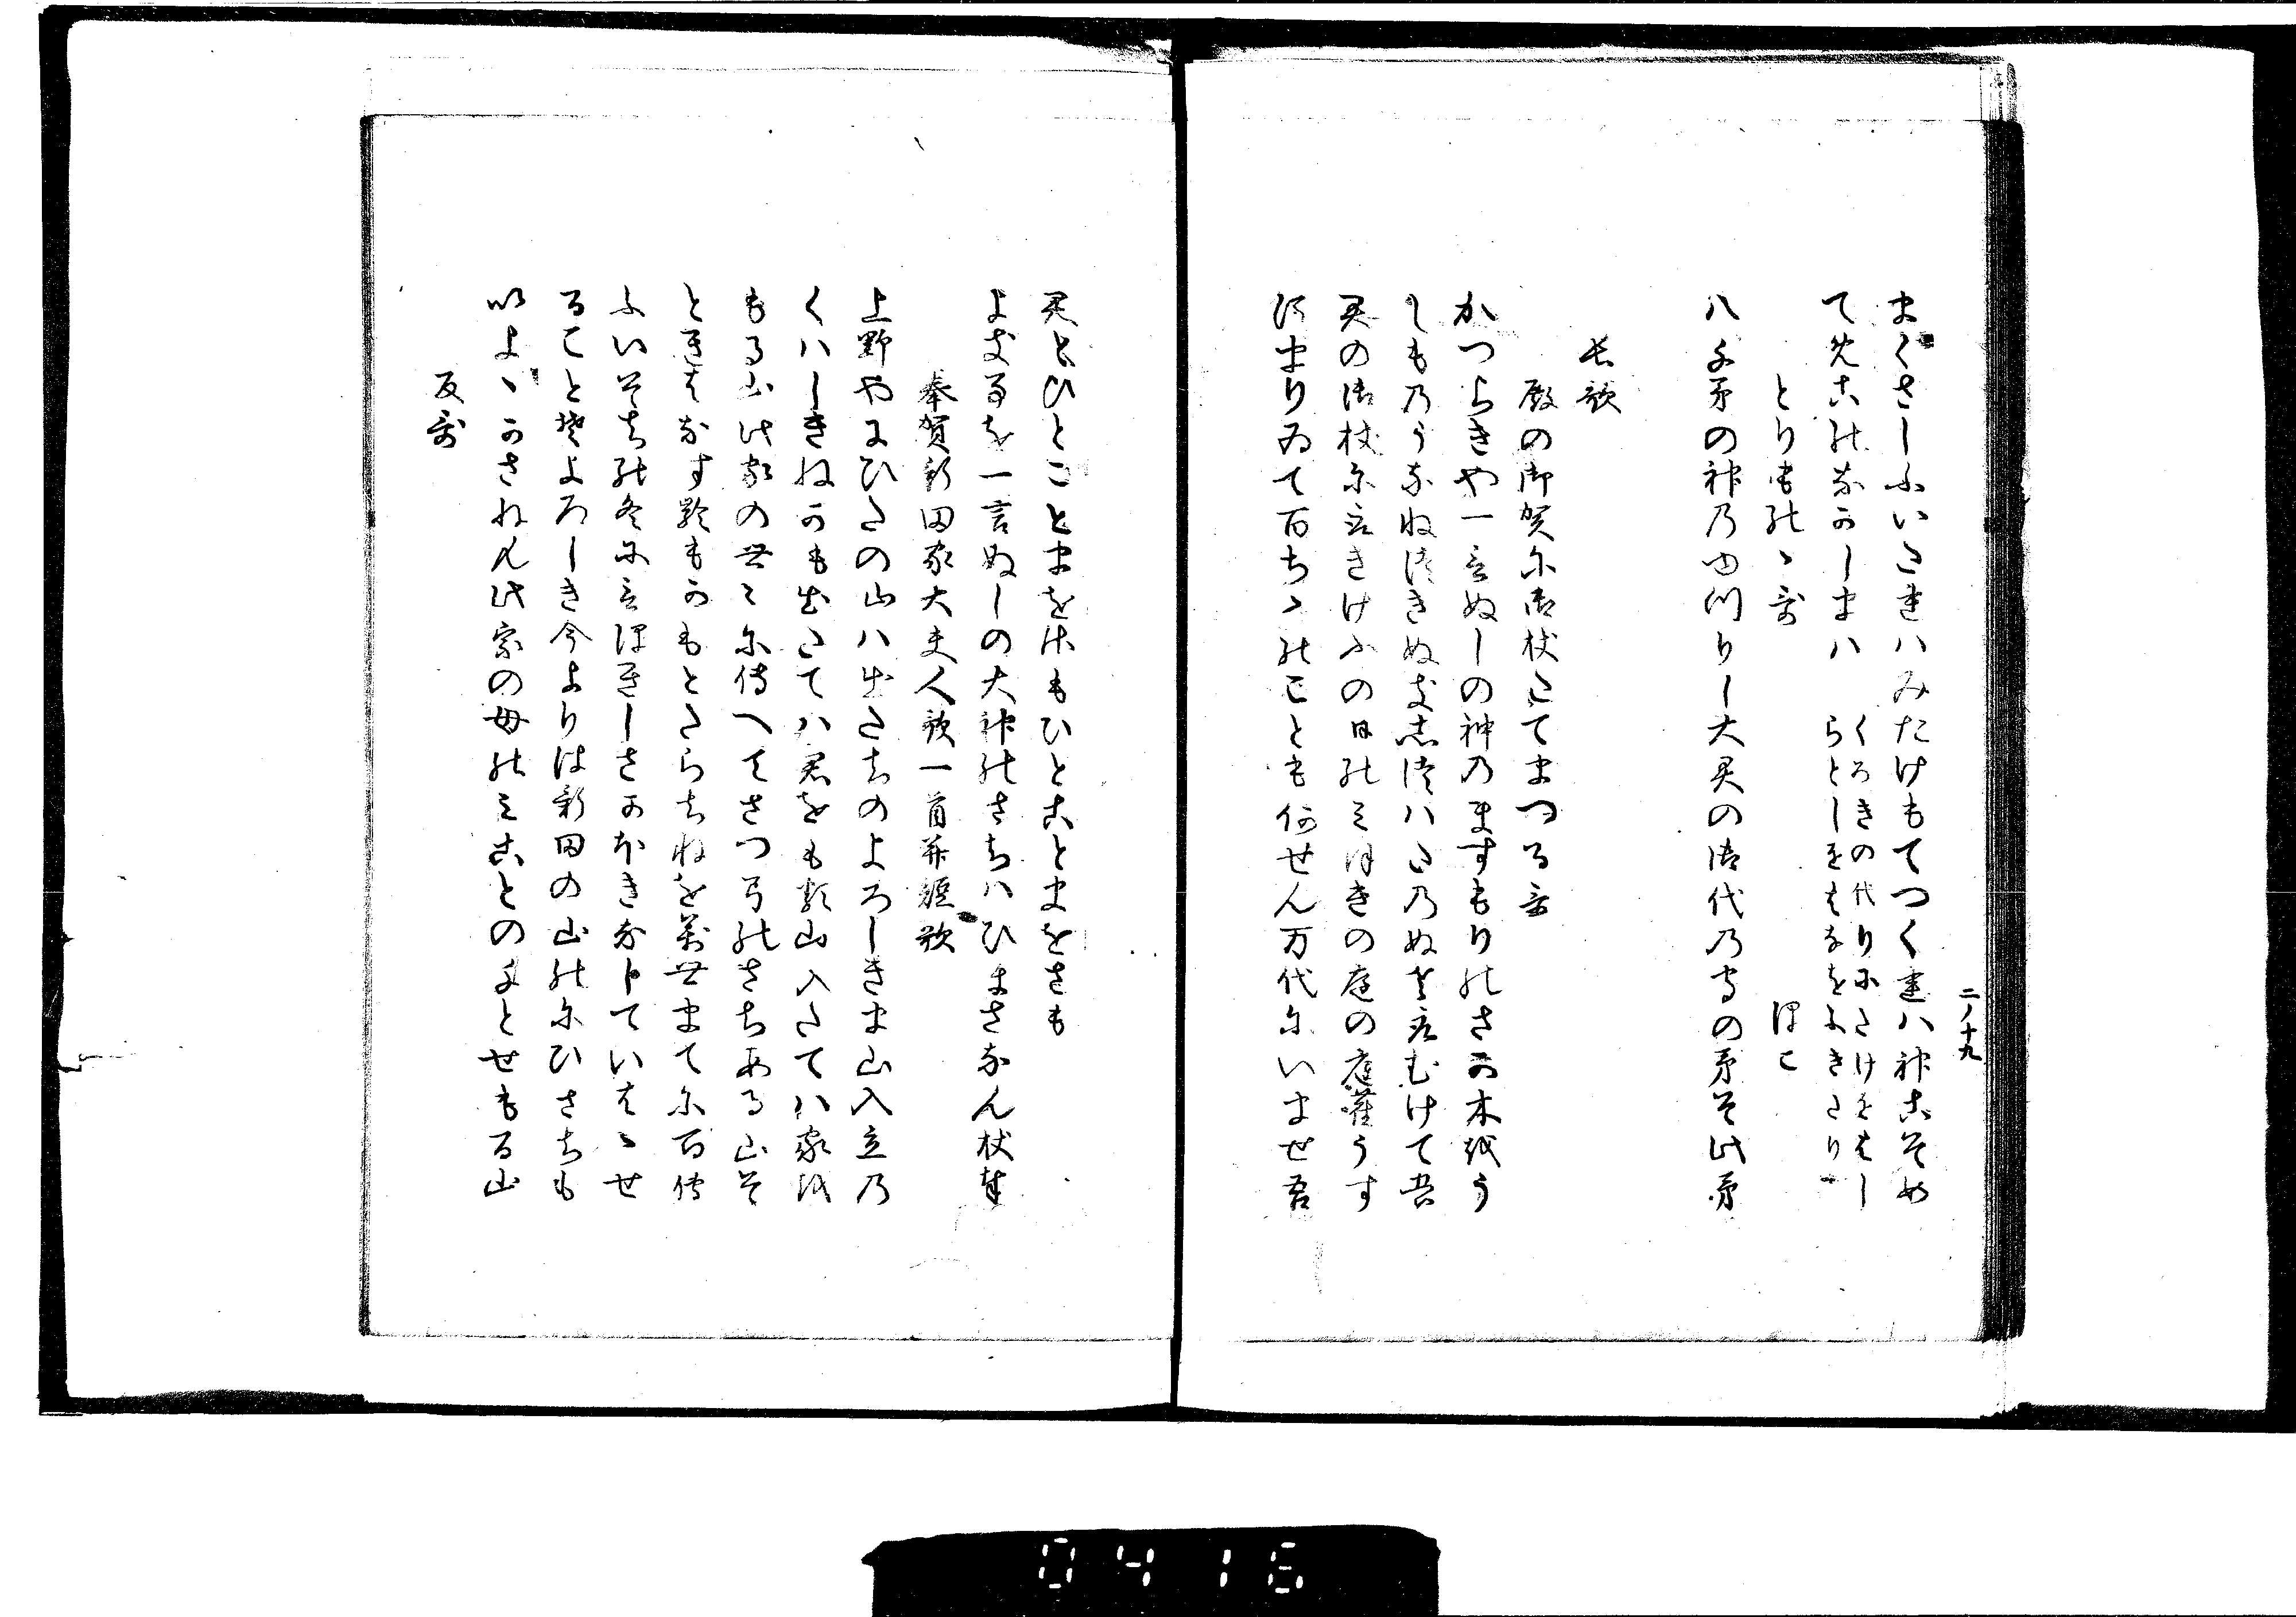 二ノ十九
まくさしふいたれハみたけもてつくれハ神こそめ
て先こ能なかしまハ
くろきの代りにたけをはし
らとしをはなをふきたり
とりも能ゝ哥
ほこ
八千矛の神乃ゆつりし大君の御代乃守の矛そ此矛
長歌
殿の御賀に御杖たてまつる哥
かつらきや一言ぬしの神のますもり能さか木をう
しも乃うなねつきぬき志つハたのぬさ取むけて吾
君の御杖に取きけふの日能ミほきの庭の庭雀うす
すまりゐて百ちゝ能ことも何せん万代にいませ吾
君とひとことまをすもひとことまをさも
よきるを一言ぬしの大神能さちハひまさなん杖そ
奉賀新田家大夫人歌一首并短歌
上野やまひたの山ハ出たちのよろしきま山入立乃
くハしきねかも出たてハ君をも頼山入たてハ家を
もる山此家の世ゝに傳へてさつ弓能さちある山そ
ときはなす齢もかもとたらちねを萬世まてに百傳
ふいそち能冬に言ほきしさかほきなしていはゝせ
ることそよろしき今よりは新田の山能にひさちも
いよゝかさねん此家の母能ミことの千とせもる山
反哥
0416